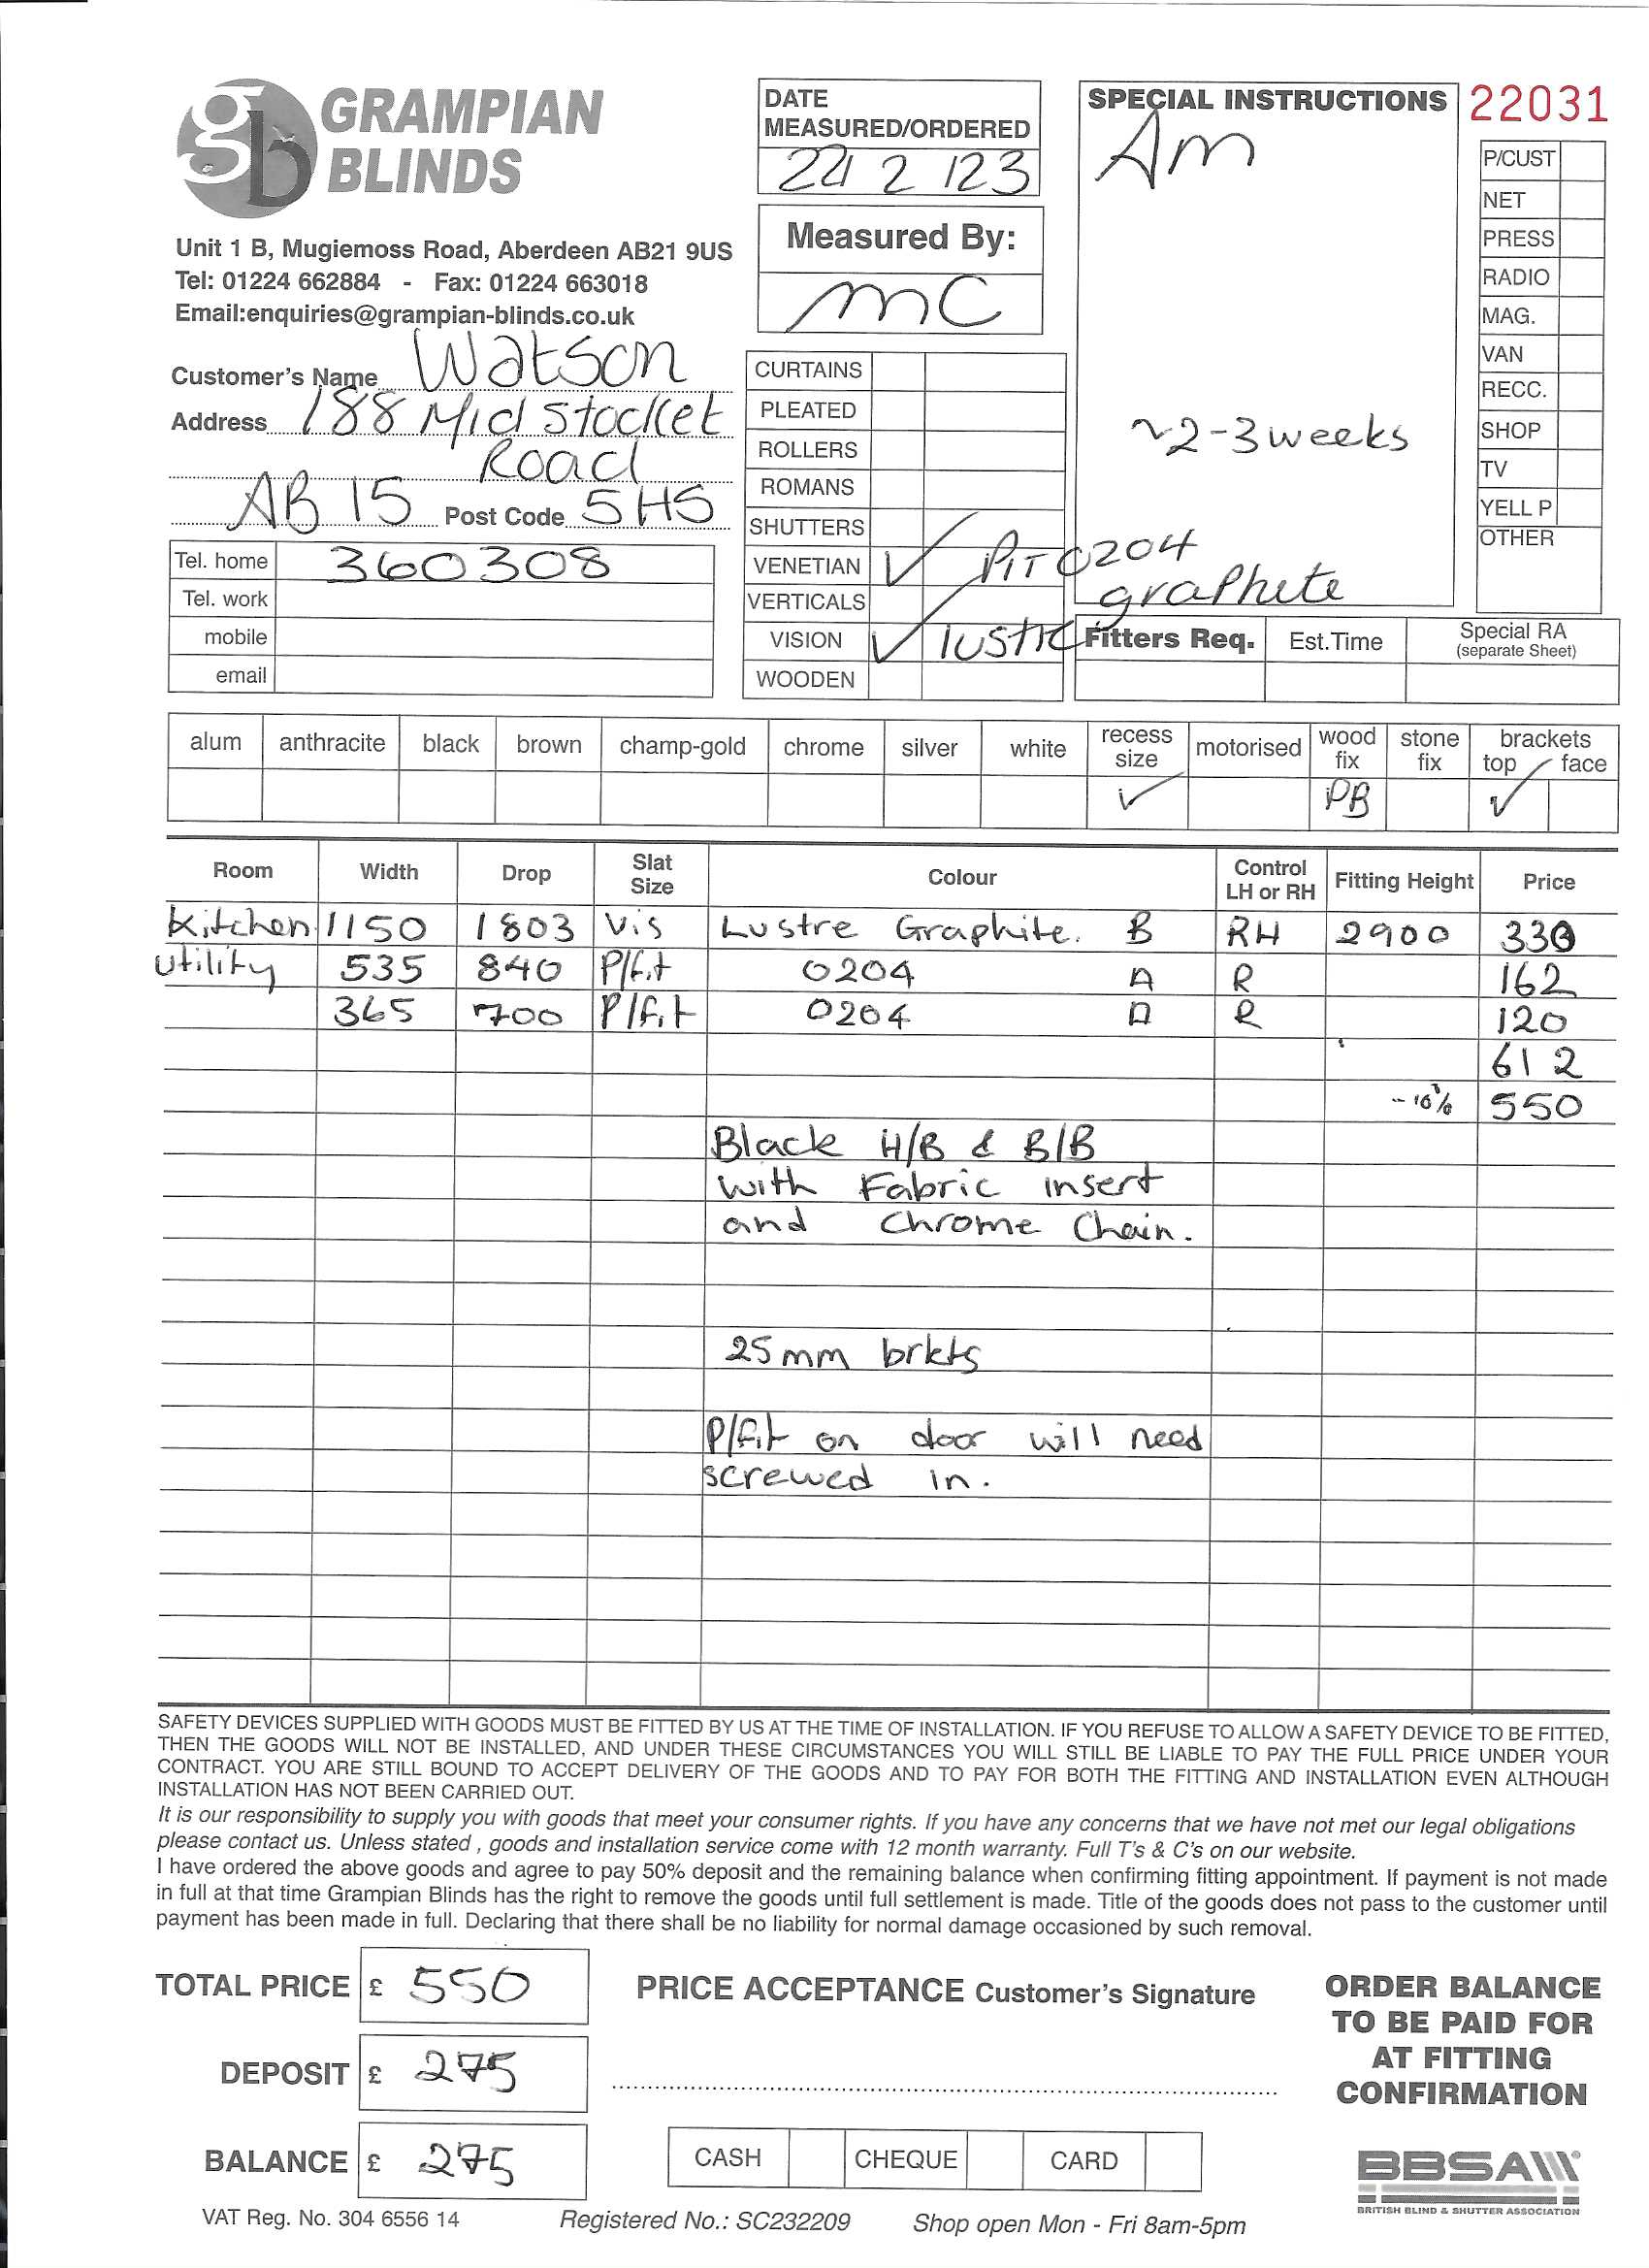 gb GRAMPIAN
BLINDS
Unit 1 B, Mugiemoss Road, Aberdeen AB21 9US
Tel: 01224 662884 - Fax: 01224 663018
Email:enquiries@grampian-blinds.co.uk
Customer's Name Watson
Address 188 Mid Stocket
Road
AB15 Post Code 5HS
Tel. home 360308
Tel. work
mobile
email
DATE
MEASURED/ORDERED
2 123
Measured By:
MC
CURTAINS
PLEATED
ROLLERS
ROMANS
SHUTTERS
VENETIAN ✓ 0204
graphite
VERTICALS
VISION ✓
WOODEN
SPECIAL INSTRUCTIONS
Am
~2-3 weeks
22031
P/CUST
NET
PRESS
RADIO
MAG.
VAN
RECC.
SHOP
TV
YELL P
OTHER
Fitters Req. Est.Time Special RA
(separate Sheet)
alum anthracite black brown champ-gold chrome silver white recess size motorised wood fix stone fix brackets top face
✓ PB ✓
Room Width Drop Slat Size Colour Control LH or RH Fitting Height Price
Kitchen 1150 1803 Vis Lustre Graphite. B RH 2900 330
Utility 535 840 P/fit 0204 A R 162
365 700 P/fit 0204 A R 120
612
-10% 550
Black H/B & B/B
with Fabric insert
and Chrome Chain.
25mm brkts
P/fit on door will need
screwed in.
SAFETY DEVICES SUPPLIED WITH GOODS MUST BE FITTED BY US AT THE TIME OF INSTALLATION. IF YOU REFUSE TO ALLOW A SAFETY DEVICE TO BE FITTED,
THEN THE GOODS WILL NOT BE INSTALLED, AND UNDER THESE CIRCUMSTANCES YOU WILL STILL BE LIABLE TO PAY THE FULL PRICE UNDER YOUR
CONTRACT. YOU ARE STILL BOUND TO ACCEPT DELIVERY OF THE GOODS AND TO PAY FOR BOTH THE FITTING AND INSTALLATION EVEN ALTHOUGH
INSTALLATION HAS NOT BEEN CARRIED OUT.
It is our responsibility to supply you with goods that meet your consumer rights. If you have any concerns that we have not met our legal obligations
please contact us. Unless stated , goods and installation service come with 12 month warranty. Full T's & C's on our website.
I have ordered the above goods and agree to pay 50% deposit and the remaining balance when confirming fitting appointment. If payment is not made
in full at that time Grampian Blinds has the right to remove the goods until full settlement is made. Title of the goods does not pass to the customer until
payment has been made in full. Declaring that there shall be no liability for normal damage occasioned by such removal.
TOTAL PRICE £ 550
DEPOSIT £ 275
BALANCE £ 275
PRICE ACCEPTANCE Customer's Signature
CASH CHEQUE CARD
ORDER BALANCE
TO BE PAID FOR
AT FITTING
CONFIRMATION
BBSA
BRITISH BLIND & SHUTTER ASSOCIATION
VAT Reg. No. 304 6556 14 Registered No.: SC232209 Shop open Mon - Fri 8am-5pm